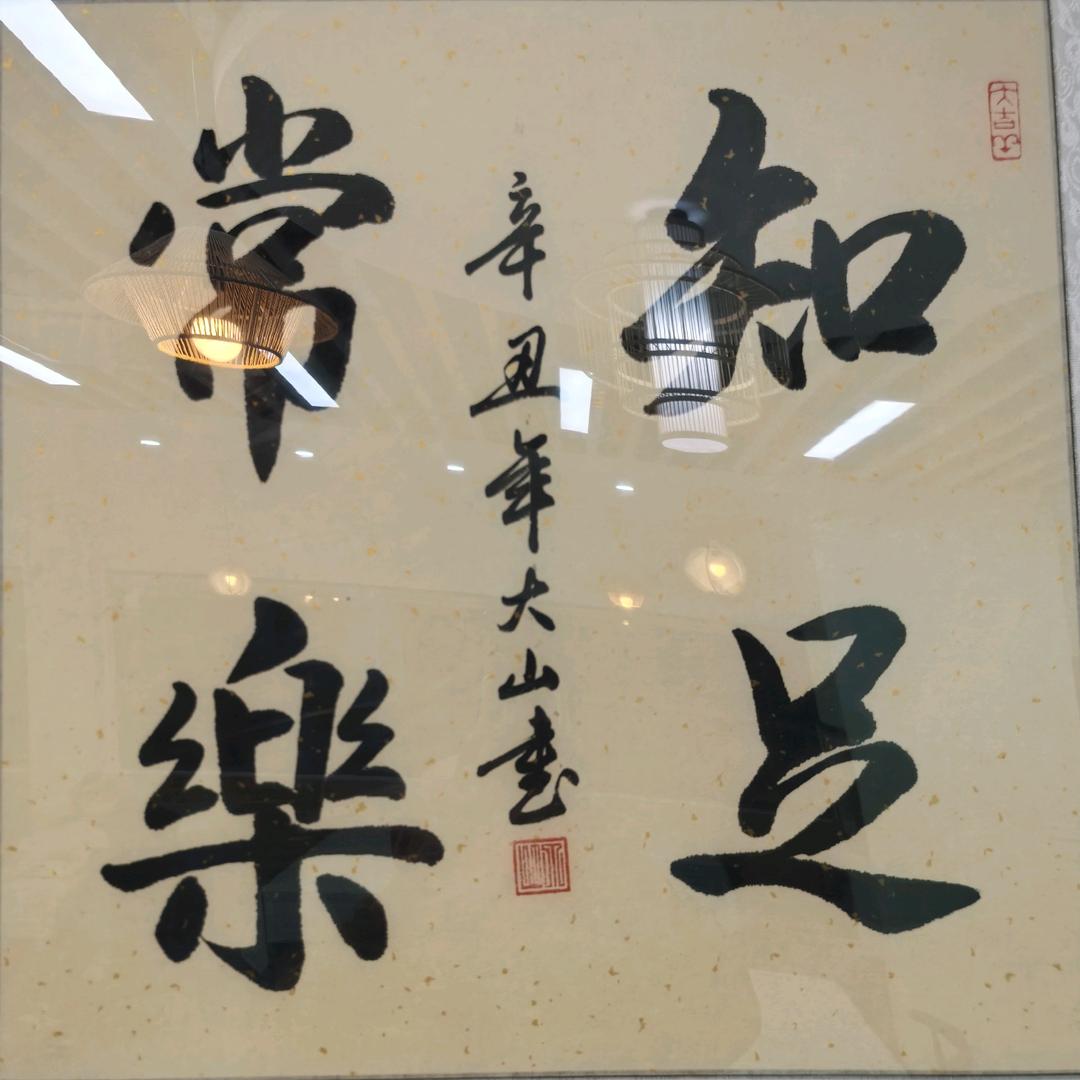 知足
常樂
辛丑年大山書
大吉